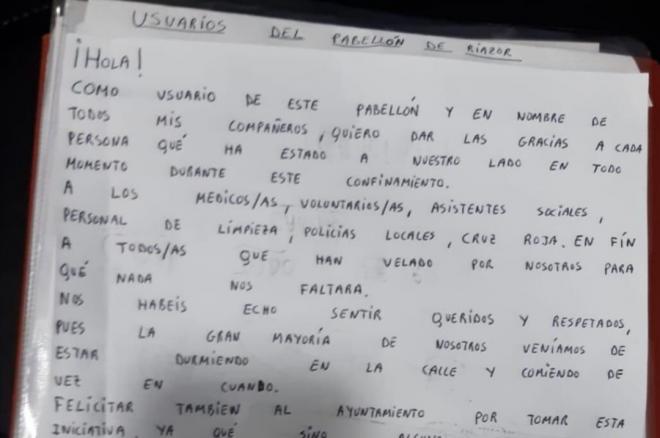 USUARÍOS DEL PABELLÓN DE RIAZOR
¡HOLA!
COMO USUARIO DE ESTE PABELLÓN Y EN NOMBRE DE
TODOS MIS COMPAÑEROS, QUIERO DAR LAS GRACIAS A CADA
PERSONA QUÉ HA ESTADO A NUESTRO LADO EN TODO
MOMENTO DURANTE ESTE CONFINAMIENTO.
A LOS MEDICOS/AS, VOLUNTARIOS/AS, ASISTENTES SOCIALES,
PERSONAL DE LIMPIEZA, POLICIAS LOCALES, CRUZ ROJA. EN FÍN
A TODOS/AS QUE HAN VELADO POR NOSOTROS PARA
QUÉ NADA NOS FALTARA.
NOS HABEIS ECHO SENTIR QUERIDOS Y RESPETADOS,
PUES LA GRAN MAYORÍA DE NOSOTROS VENÍAMOS DE
ESTAR DURMIENDO EN LA CALLE Y COMIENDO DE
VEZ EN CUANDO.
FELICITAR TAMBIEN AL AYUNTAMIENTO POR TOMAR ESTA
INICIATIVA, YA QUÉ SINO